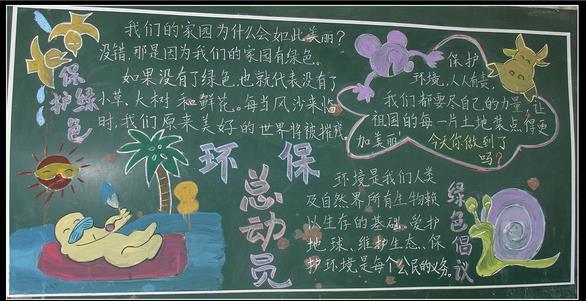 保护绿色
我们的家园为什么会如此美丽?
没错,那是因为我们的家园有绿色。
如果没有了绿色,也就代表没有了
小草、大树和鲜花。每当风沙来临
时,我们原来美好的世界将被摧残
保护
环境,人人有责,
我们都要尽自己的力量,让
祖国的每一片土地装点得更
加美丽!
今天你做到了
吗?
环保
总动员
环境是我们人类
及自然界所有生物赖
以生存的基础,爱护
地球、维护生态、保
护环境是每个公民的义务。
绿色倡议